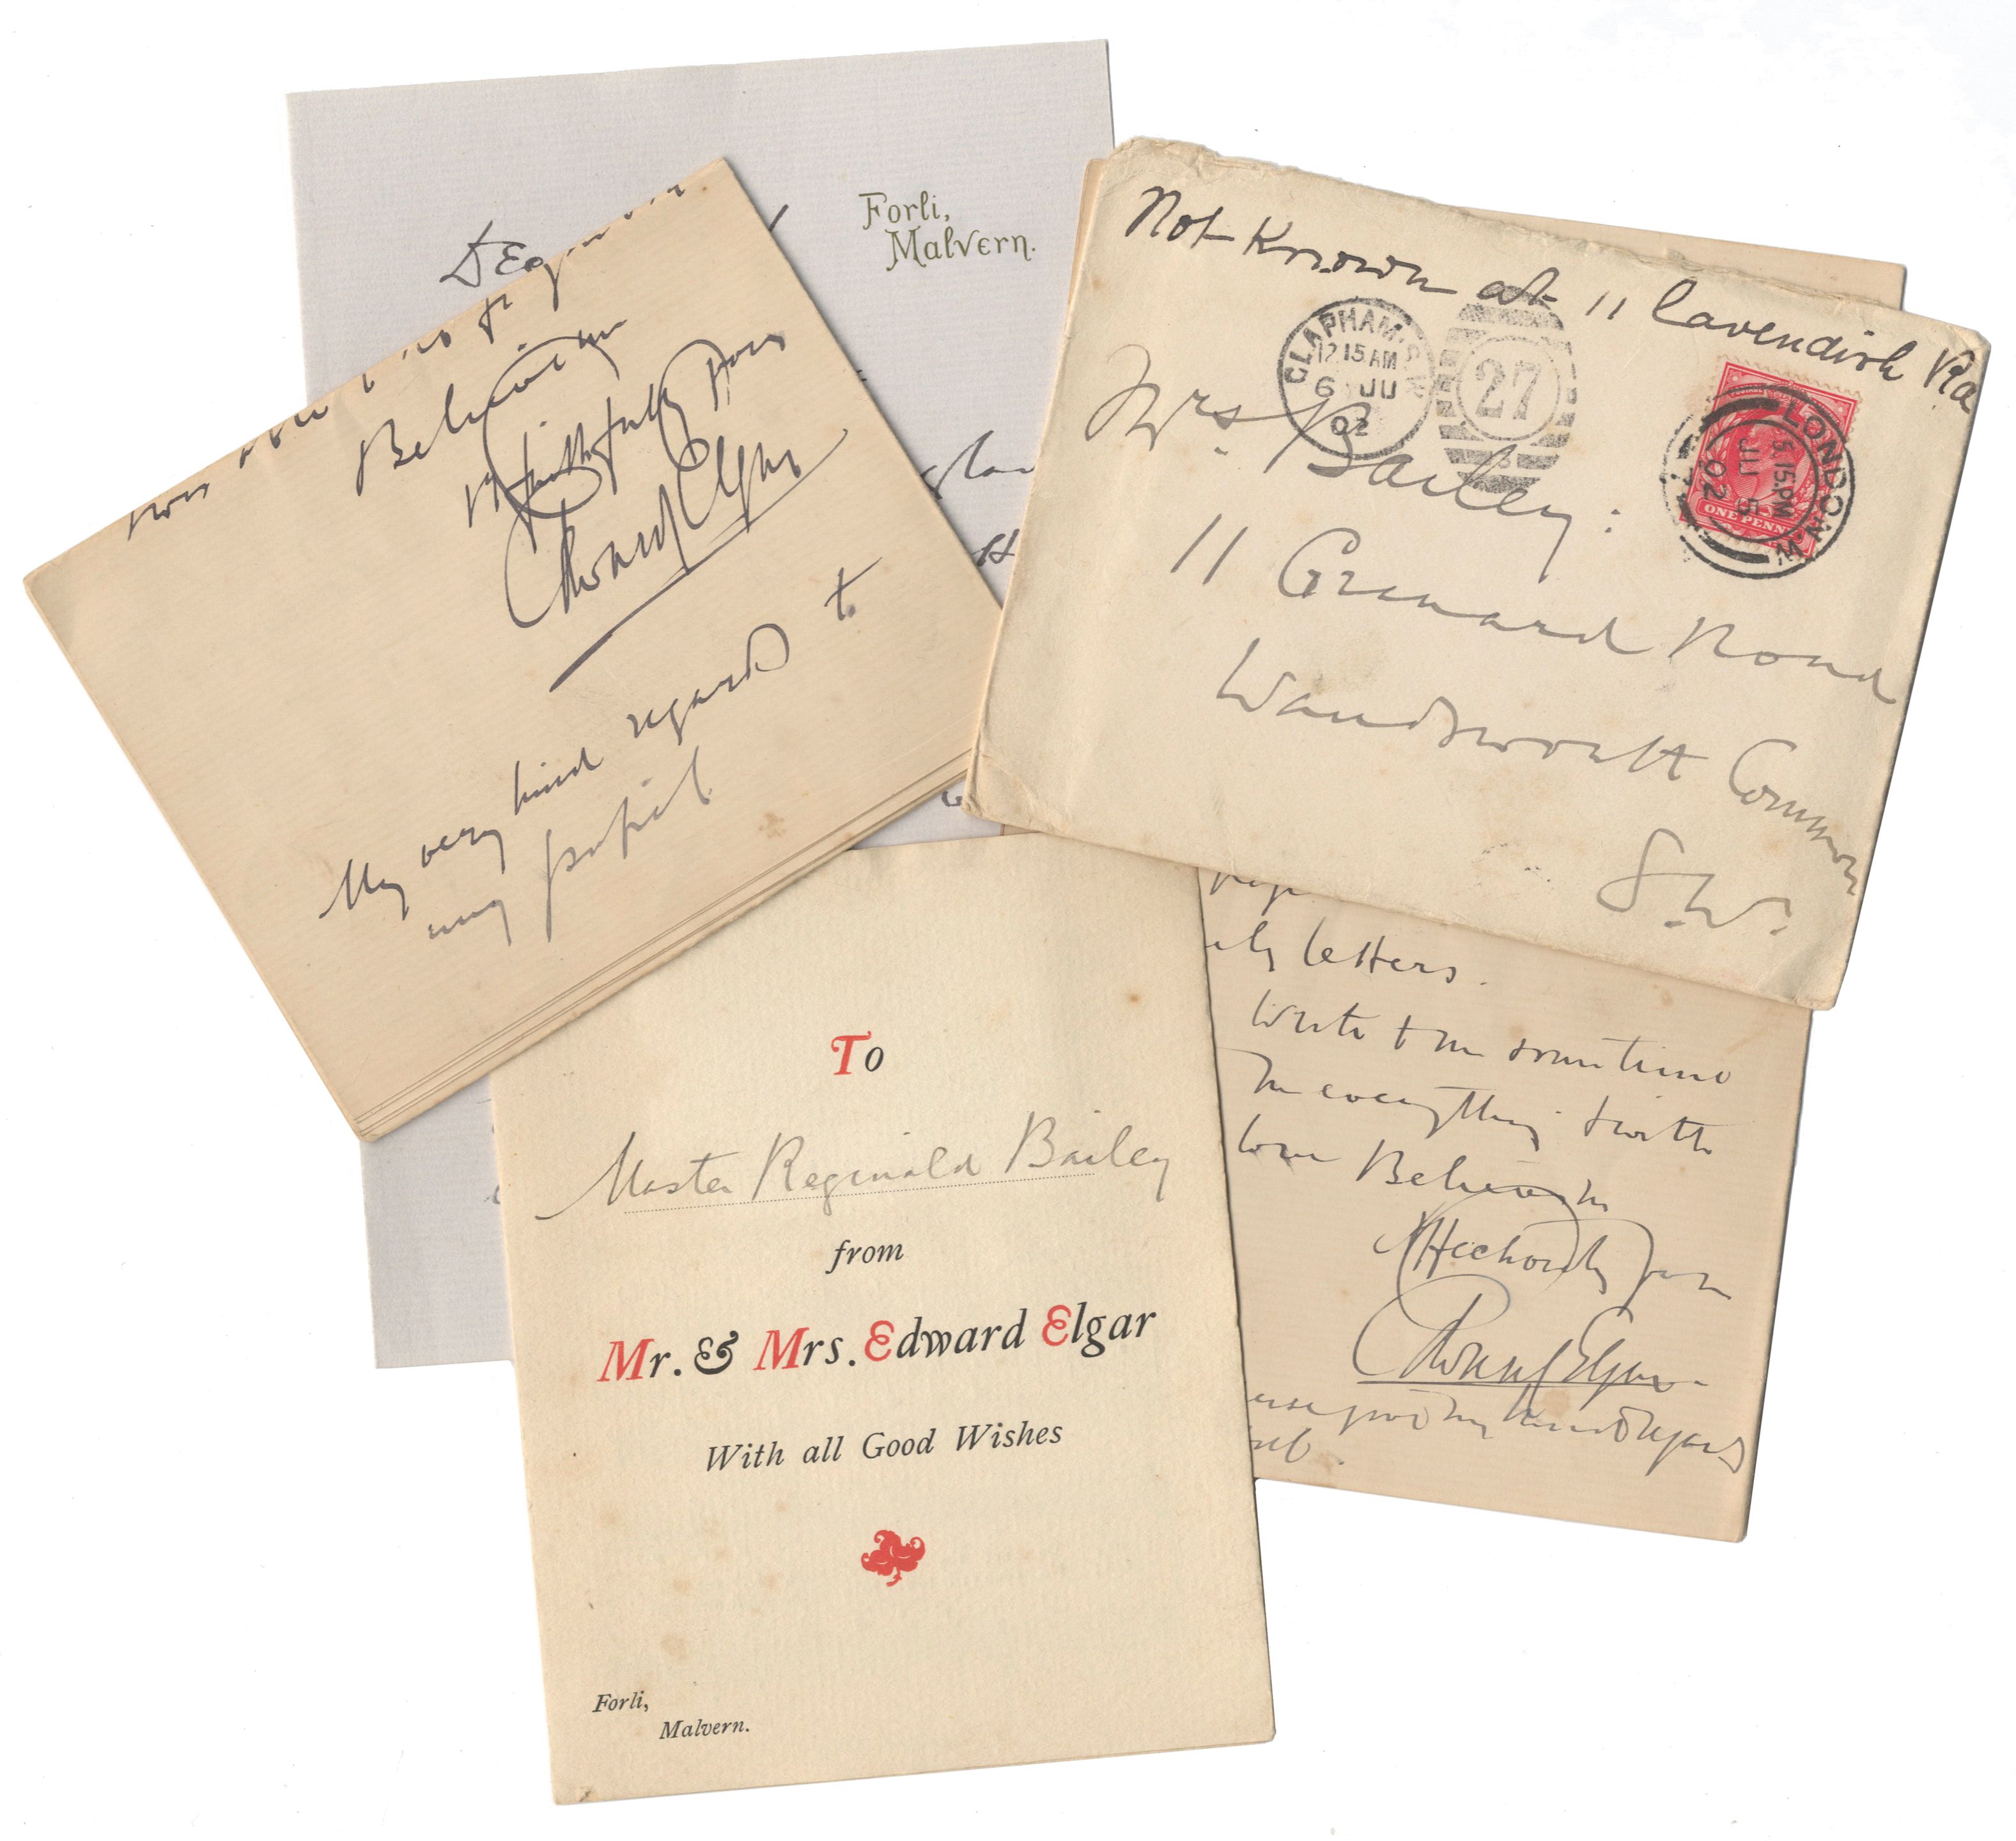 Forli,
Malvern.
Believe me
faithfully yours
Edward Elgar
My very kind regards to
my pupil
Not Known at 11 Cavendish Rd
CLAPHAM. S.W.
12.15 AM
6 JU
02
27
LONDON W
5.15.PM
JU 5
02
ONE PENNY
Mrs. Bailey:
11 Grenard Road
Wandsworth Common
S.W.
letters.
Write to me sometime
everything & with
love Believe me
Affectionately yours
Edward Elgar.
my kindest regards
To
Master Reginald Bailey
from
Mr. & Mrs. Edward Elgar
With all Good Wishes
Forli,
Malvern.